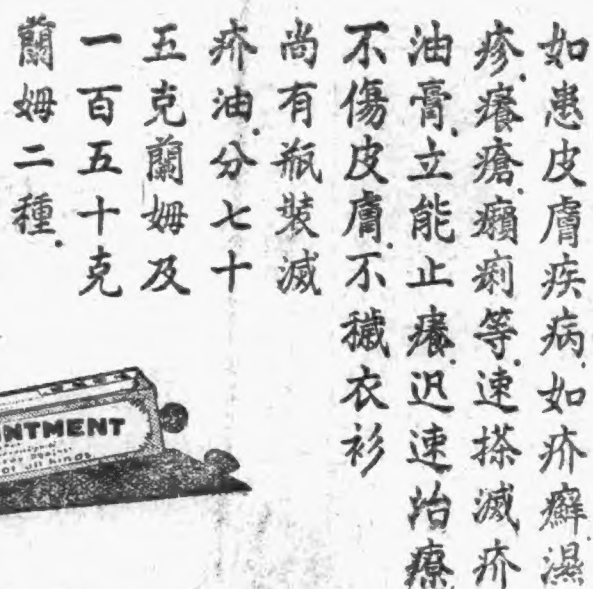 如患皮膚疾病.如疥癬.濕
疹.癢瘡.癩痢等.速搽滅疥
油膏.立能止癢.迅速治療
不傷皮膚.不穢衣衫
尚有瓶裝滅
疥油.分七十
五克蘭姆及
一百五十克
蘭姆二種.
NTMENT
of all kinds